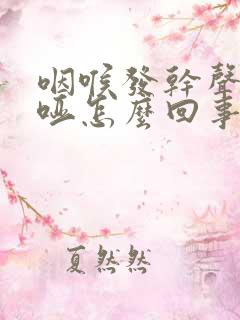 咽喉發幹聲
啞怎麼回事
夏然然